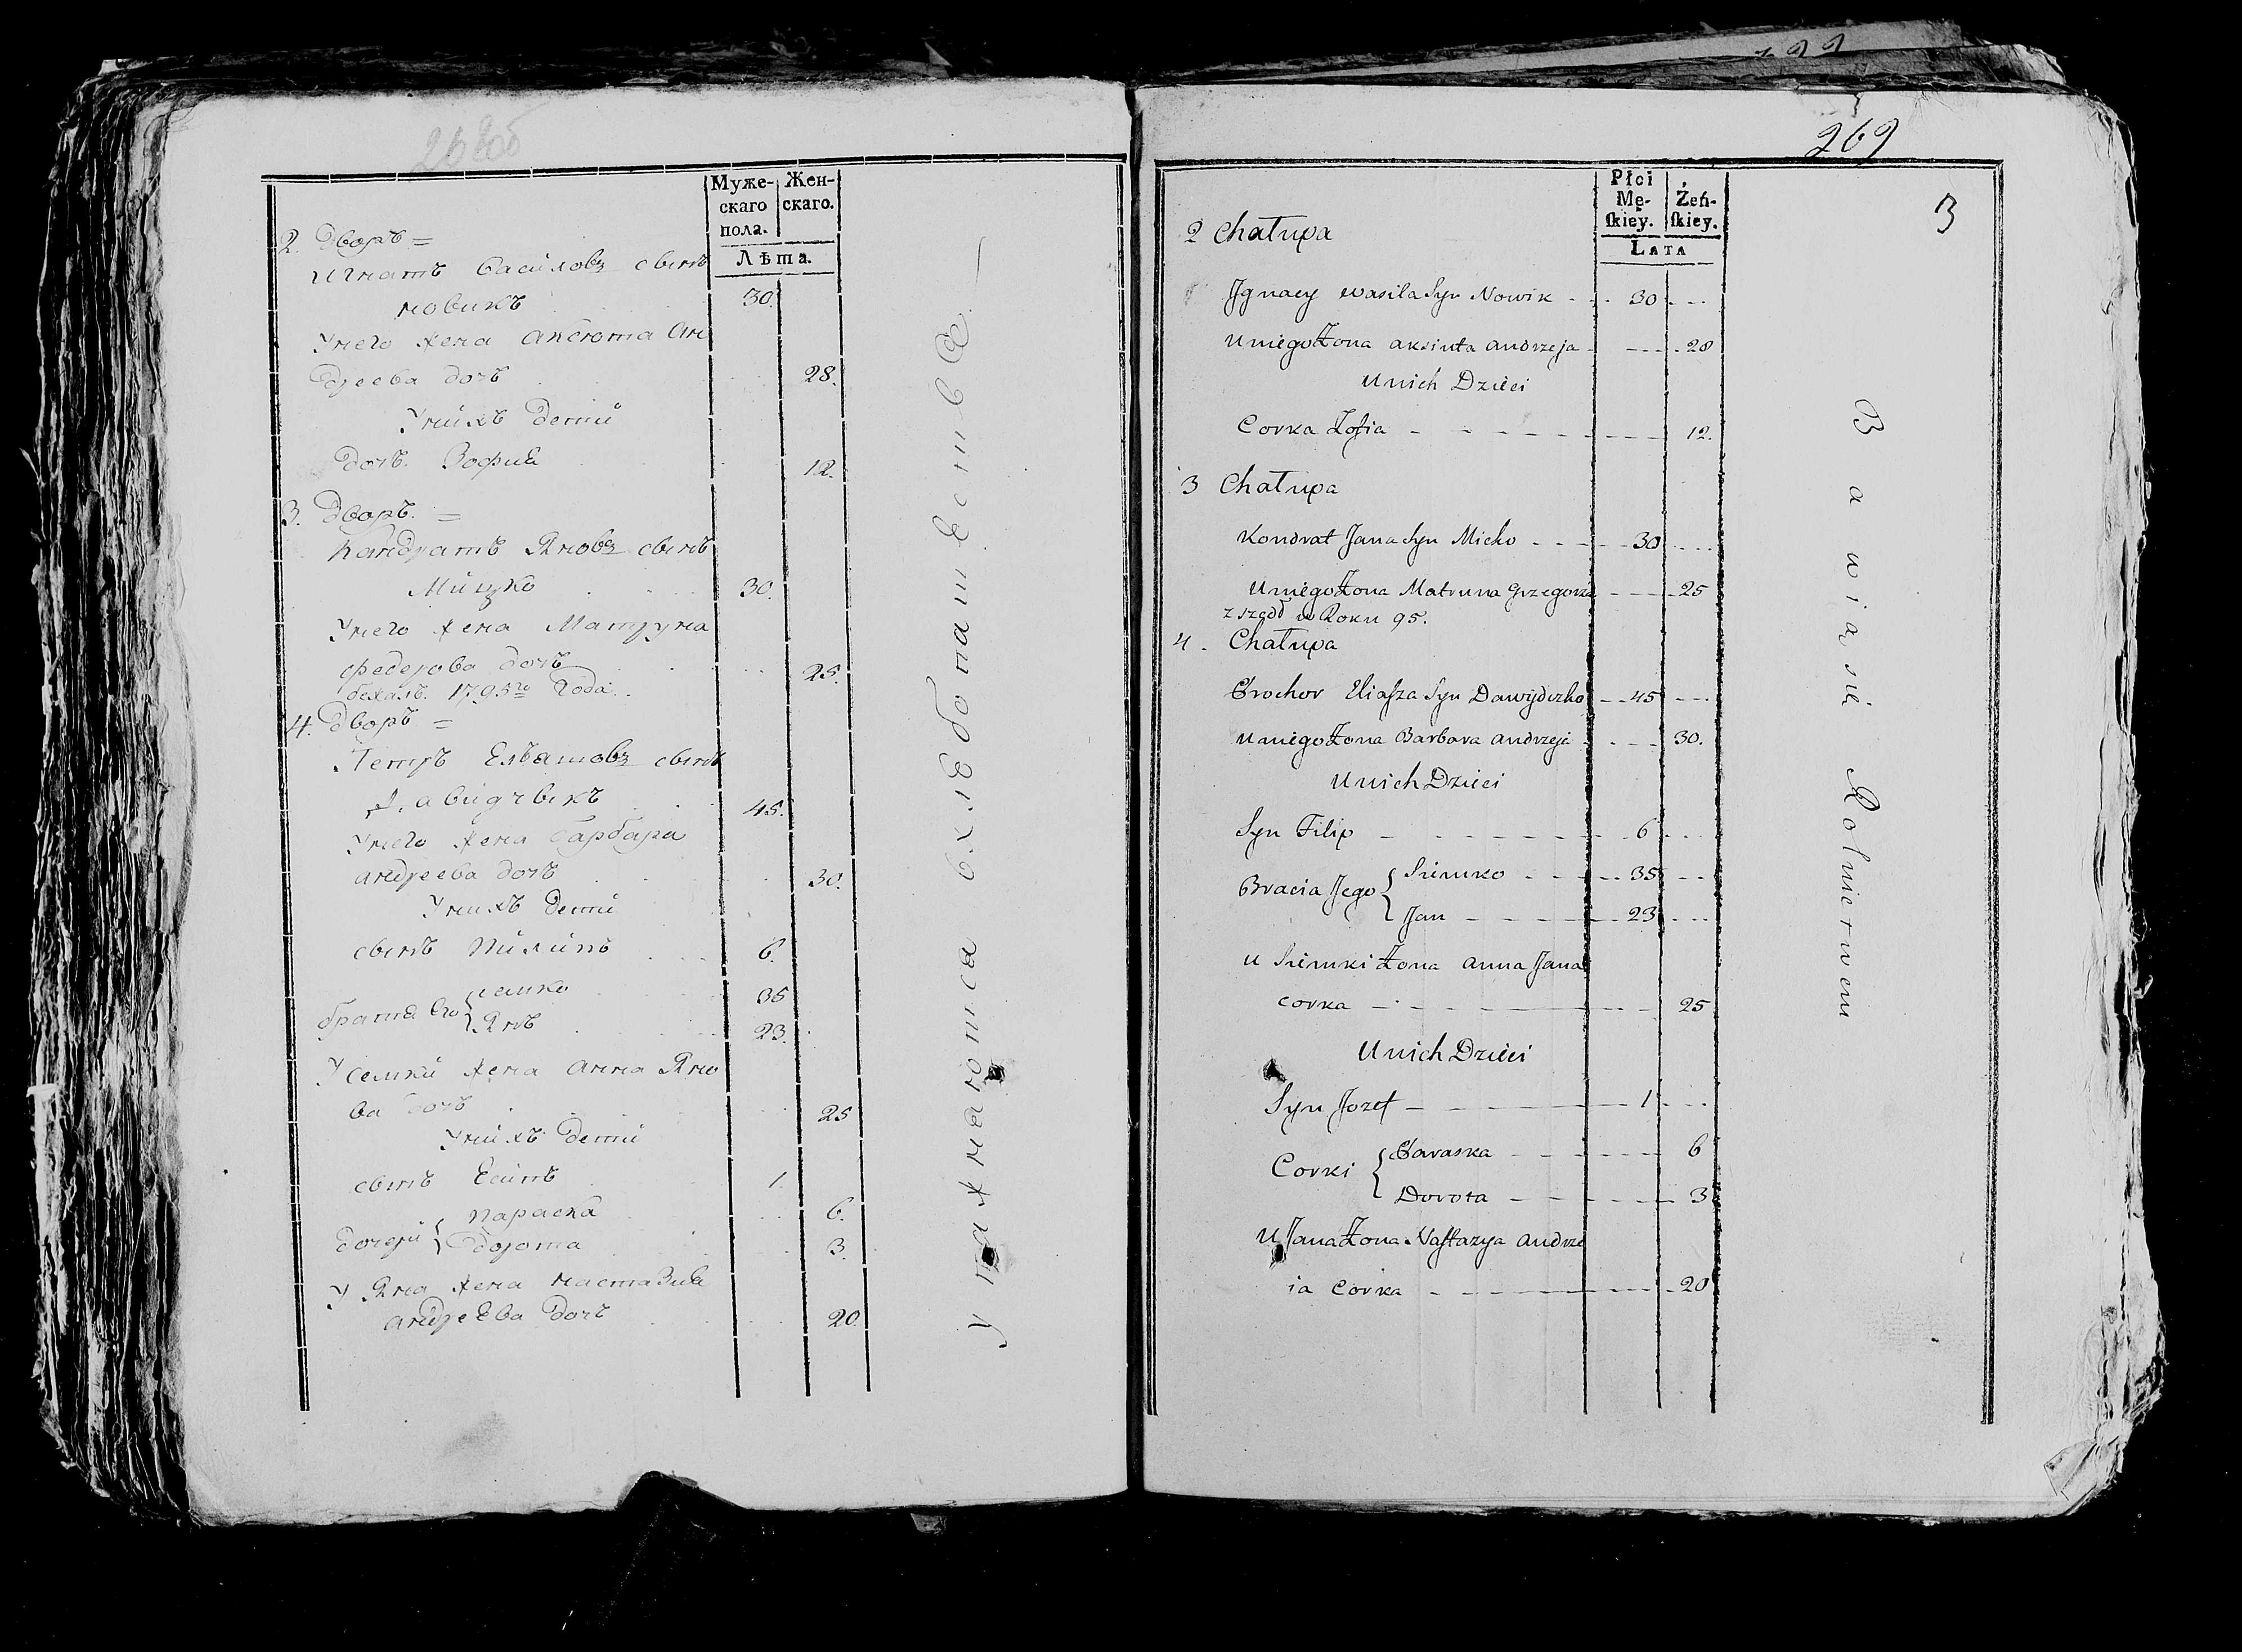 268об
Муже-
скаго
пола.
Жен-
скаго.
Лѣта.
2. Дворъ =
Игнатъ Василовъ сынъ
новикъ 30.
Унего жена Аксюта Ан
дреева дочь 28.
Унихъ дети
дочь Зофия 12.
3. Дворъ. =
Кандратъ Яновъ сынъ
Мицко 30.
Унего жена Матруна
федерова дочь 25.
бежалъ 1795го года.
4. Дворъ =
Петръ Ельяшовъ сынъ
45.
Унего жена барбара
андреева дочь 30.
Унихъ дети
сынъ Пилипъ 6.
братя Его { семко 35
Янъ 23.
У семки жена анна Яно
ва дочь 25
Унихъ дети
сынъ Есипъ 1.
дочери { параска 6.
дорота 3.
У Яна жена настазия
андреева дочь 20.
упражнаютса вхлебопашестве
269
3
Płci
Mę-
skiey.
Żeń-
skiey.
Lata
2 Chałupa
Jgnacy wasila Syn Nowik 30
uniego Żona aksiuta andrzeja 28
unich Dzieci
Corka Zofia 12.
3 Chałupa
Kondrat Jana Syn Micko 30
uniego Żona Matruna Grzegorza 25
zszedł w Roku 95.
4. Chałupa
Prochor Eliasza Syn Dawydczko 45
uniego Żona Barbara andrzeja 30.
unich Dzieci
Syn Filip 6
Bracia Jego { Siemko 35
Jan 23
u Siemki Żona anna Jana
corka 25
unich Dzieci
Syn Jozef 1
Corki { Paraska 6
Dorota 3
u Jana Żona Nastazya andrze
ia Corka 20
Bawią się Rolnictwem